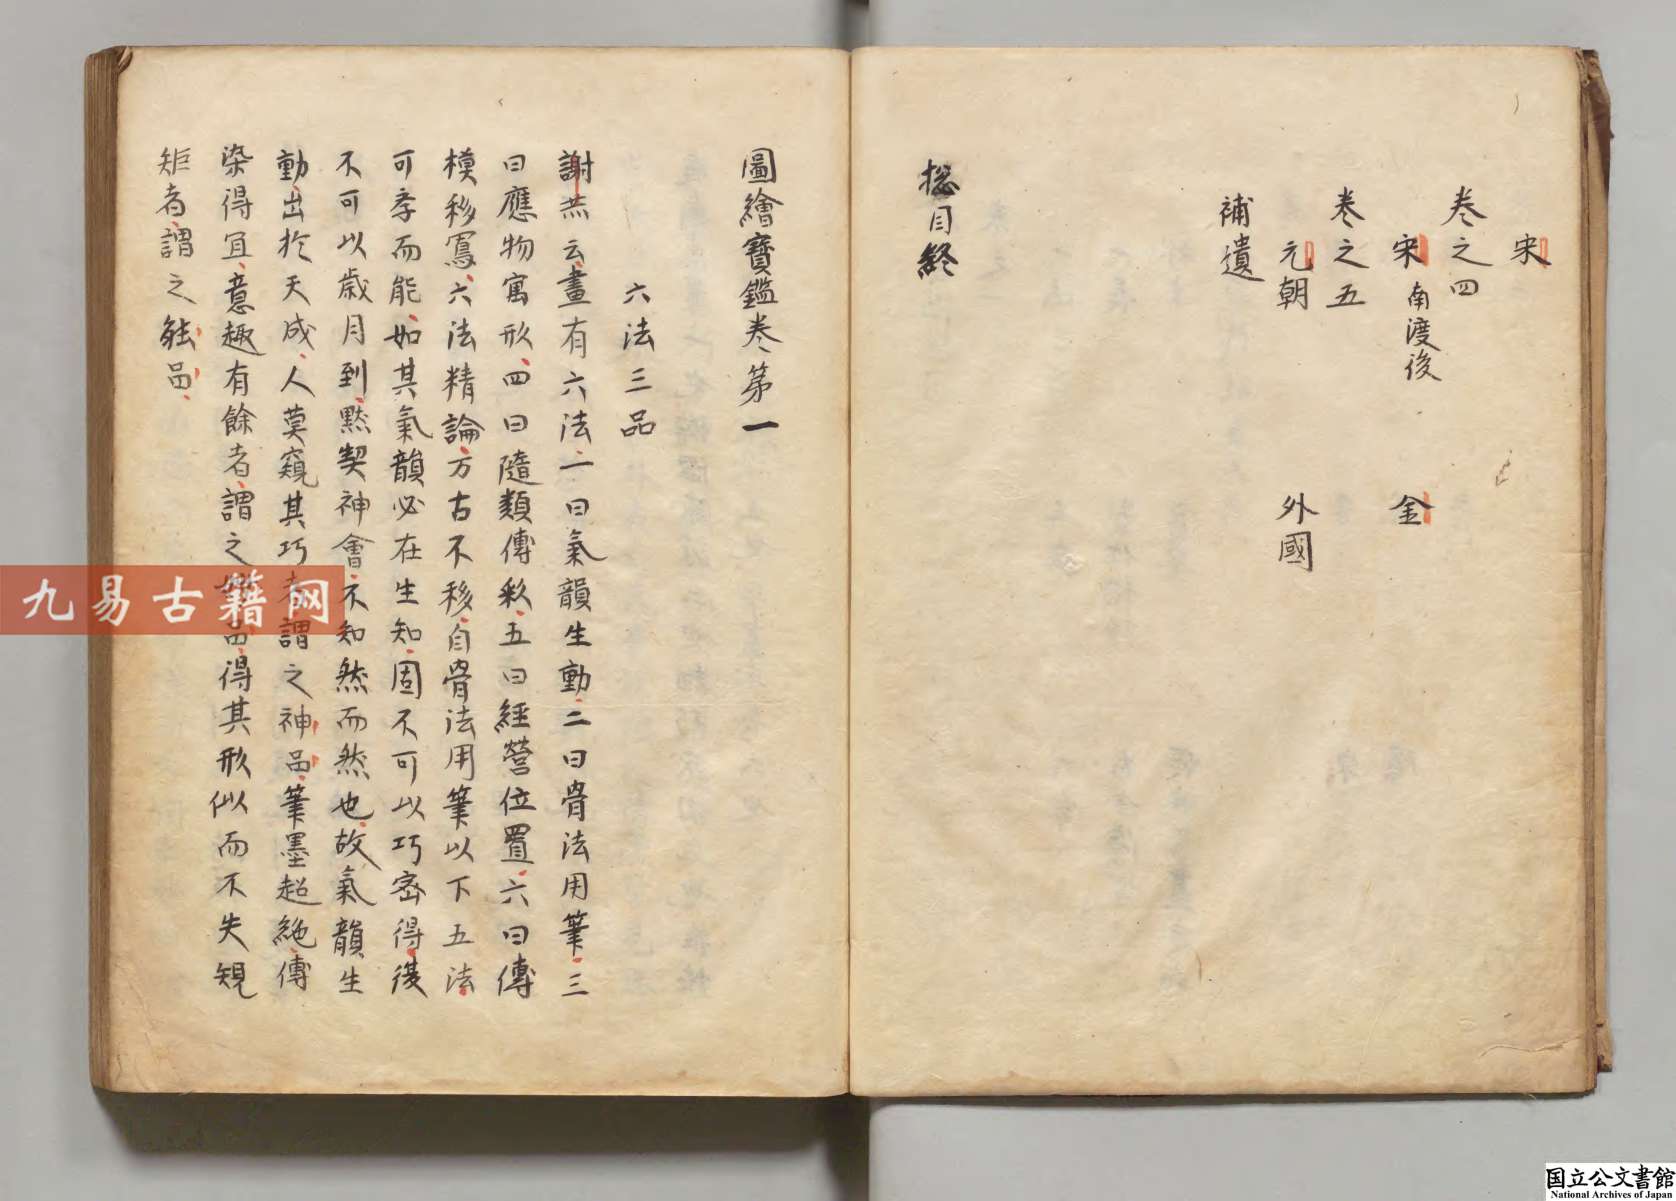 宋
卷之四
宋 南渡後 金
卷之五
元朝 外國
補遺
捴目終
圖繪寶鑑卷第一
六法三品
謝赫云畫有六法一曰氣韻生動二曰骨法用筆三
曰應物寫形四曰隨類傅彩五曰經營位置六曰傳
模移寫六法精論万古不移自骨法用筆以下五法
可孝而能如其氣韻必在生知固不可以巧密得復
不可以歳月到黙契神會不知然而然也故氣韻生
動出於天成人莫窺其巧者謂之神品筆墨超絶傳
染得宜意趣有餘者謂之品得其形似而不失規
矩者謂之能品
九易古籍网
国立公文書館
National Archives of Japan